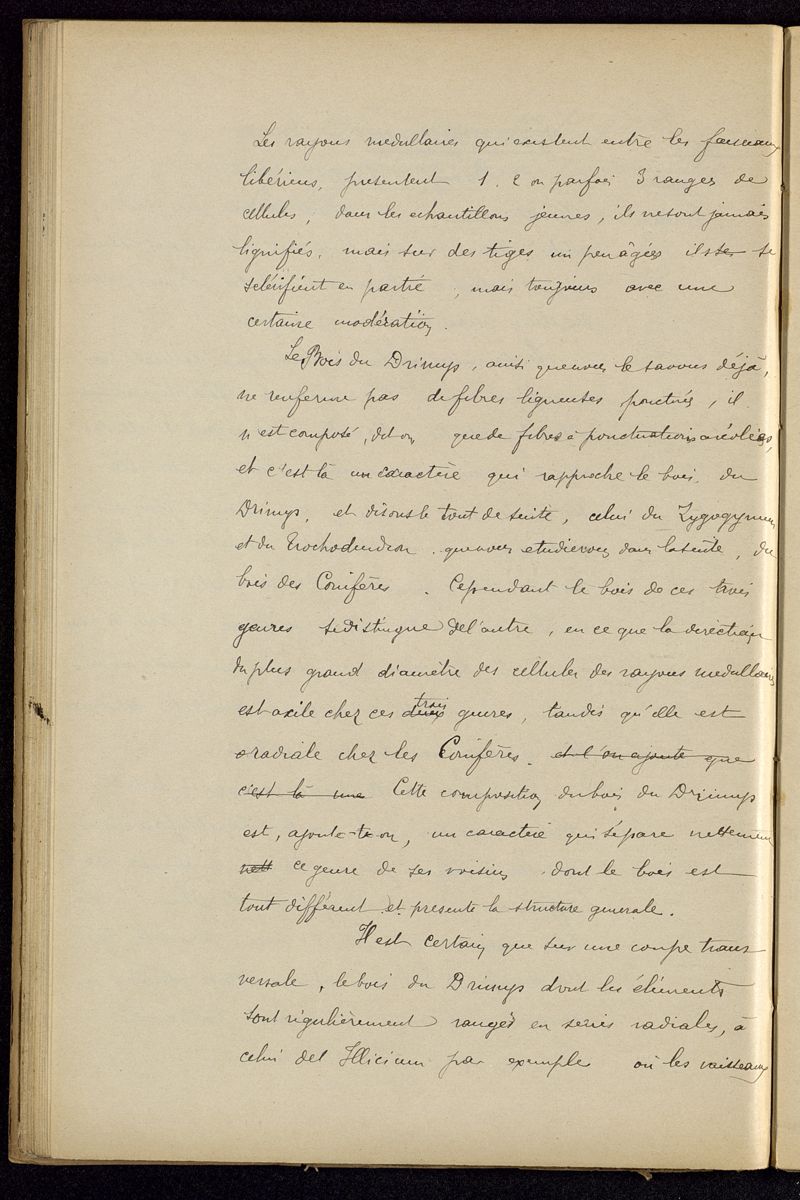 Les rayons medullaires qui existent entre les faisceaux
libériens, presentent 1, 2 ou parfois 3 rangés de
cellules, dans les echantillons jeunes, ils ne sont jamais
lignifiés, mais sur des tiges un peu âgées ils se se
sclérifient en partie, mais toujours avec une
certaine modération.
Le Bois du Drimys, ainsi que nous le savons déjà,
ne renferme pas de fibres ligneuses ponctués, il
n'est composé, dit on, que de fibres à ponctuations aréolées,
et c'est là un caractère qui rapproche le bois du
Drimys, et disons le tout de suite, celui du Zygogynum
et du Trochodendron que nous etudierons dans la suite, du
bois des Conifères. Cependant le bois de ces trois
genres se distingue de l'autre, en ce que la direction
du plus grand diamètre des cellules des rayons medullaires
est axile chez ces deux trois genres, tandis qu'elle est
radiale chez les Conifères. et l'on ajoute que
c'est là une Cette composition du bois du Drimys
est, ajoute-t-on, un caractère qui sépare nettement
nett ce genre de ses voisins dont le bois est
tout différent et presente la structure generale.
Il est certain que sur une coupe trans
versale, le bois du Drimys dont les éléments
sont régulièrement rangés en series radiales, à
celui del Illicium par exemple où les vaisseaux